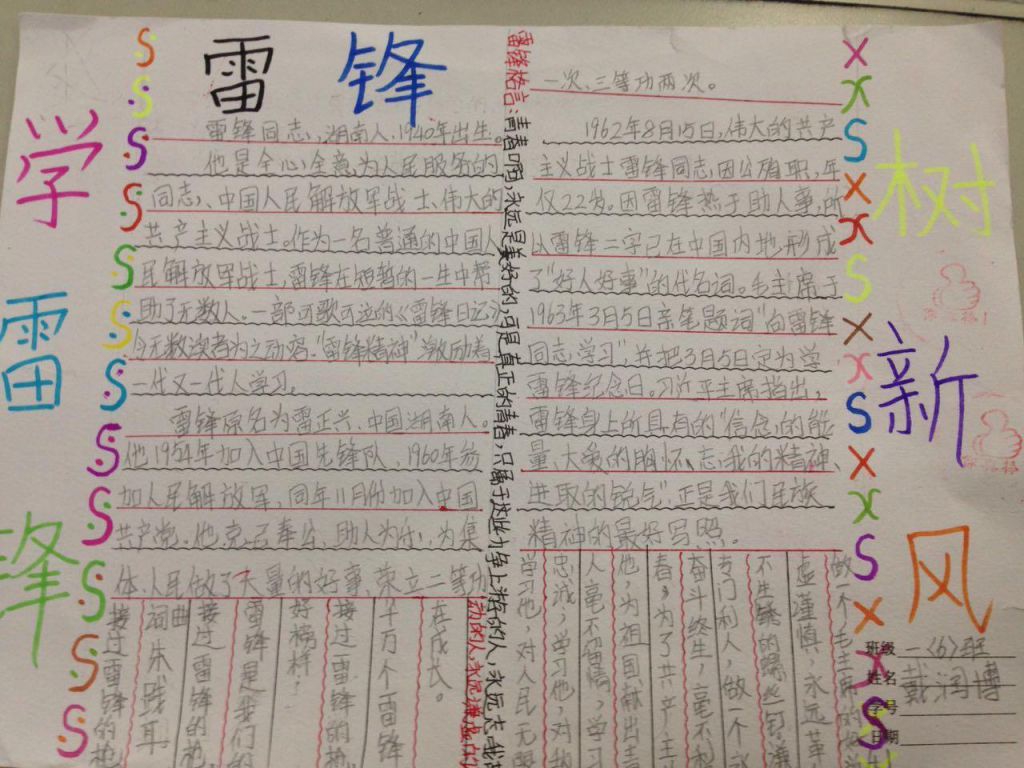 雷锋
学雷锋
树新风
雷锋同志,湖南人,1940年出生。
他是全心全意为人民服务的
同志、中国人民解放军战士、伟大的
共产主义战士。作为一名普通的中国人
民解放军战士,雷锋在短暂的一生中帮
助了无数人。一部可歌可泣的《雷锋日记》
令无数读者为之动容。"雷锋精神"激励着
一代又一代人学习。
雷锋原名为雷正兴,中国湖南人。
他1954年加入中国先锋队,1960年参
加人民解放军,同年11月份加入中国
共产党。他克己奉公,助人为乐,为集
体、人民做了大量的好事,荣立二等功
一次、三等功两次。
1962年8月15日,伟大的共产
主义战士雷锋同志因公殉职,年
仅22岁。因雷锋热于助人事,所
以雷锋二字已在中国内地形成
了"好人好事"的代名词。毛主席于
1963年3月5日亲笔题词"向雷锋
同志学习",并把3月5日定为学
雷锋纪念日。习近平主席指出,
雷锋身上所具有的"信念的能
量、大爱的胸怀、忘我的精神、
进取的锐气",正是我们民族
精神的最好写照。
雷锋格言:青春啊,永远是美好的,可是真正的青春,只属于这些力争上游的人,永远忘我
动的人,永远谦虚的
做一个毛主席的
虚谨慎,永远
不生锈的螺丝钉
专门利人,做一个
奋斗终生,毫不
春,为了共产主
他,为祖国献出
人毫不留情,学习
忠诚,学习他,对
学习他,对人民无
在成长。
千万个雷锋
接过雷锋的枪
好榜样!
雷锋是我们的
接过雷锋的枪
词曲
朱践耳
接过雷锋的枪
班级 一(6)班
姓名 戴润博
学号
日期